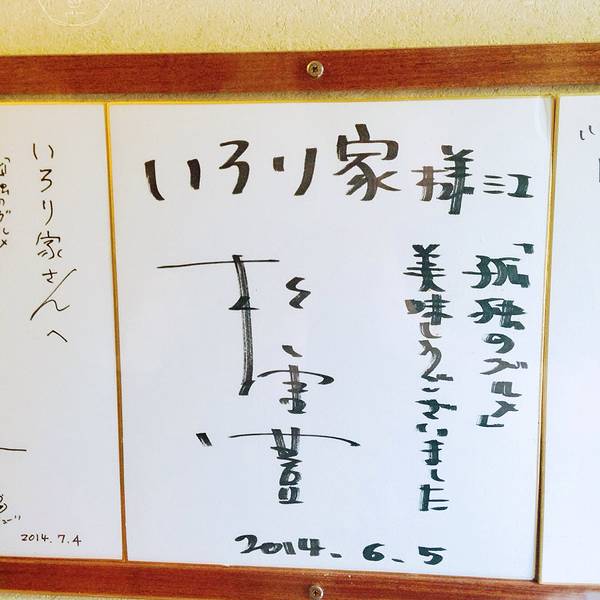 いろり家様江
「孤独のグルメ」
美味しゅうございました
松重豊
2014.6.5
いろり家さんへ
孤独のグルメ
2014.7.4